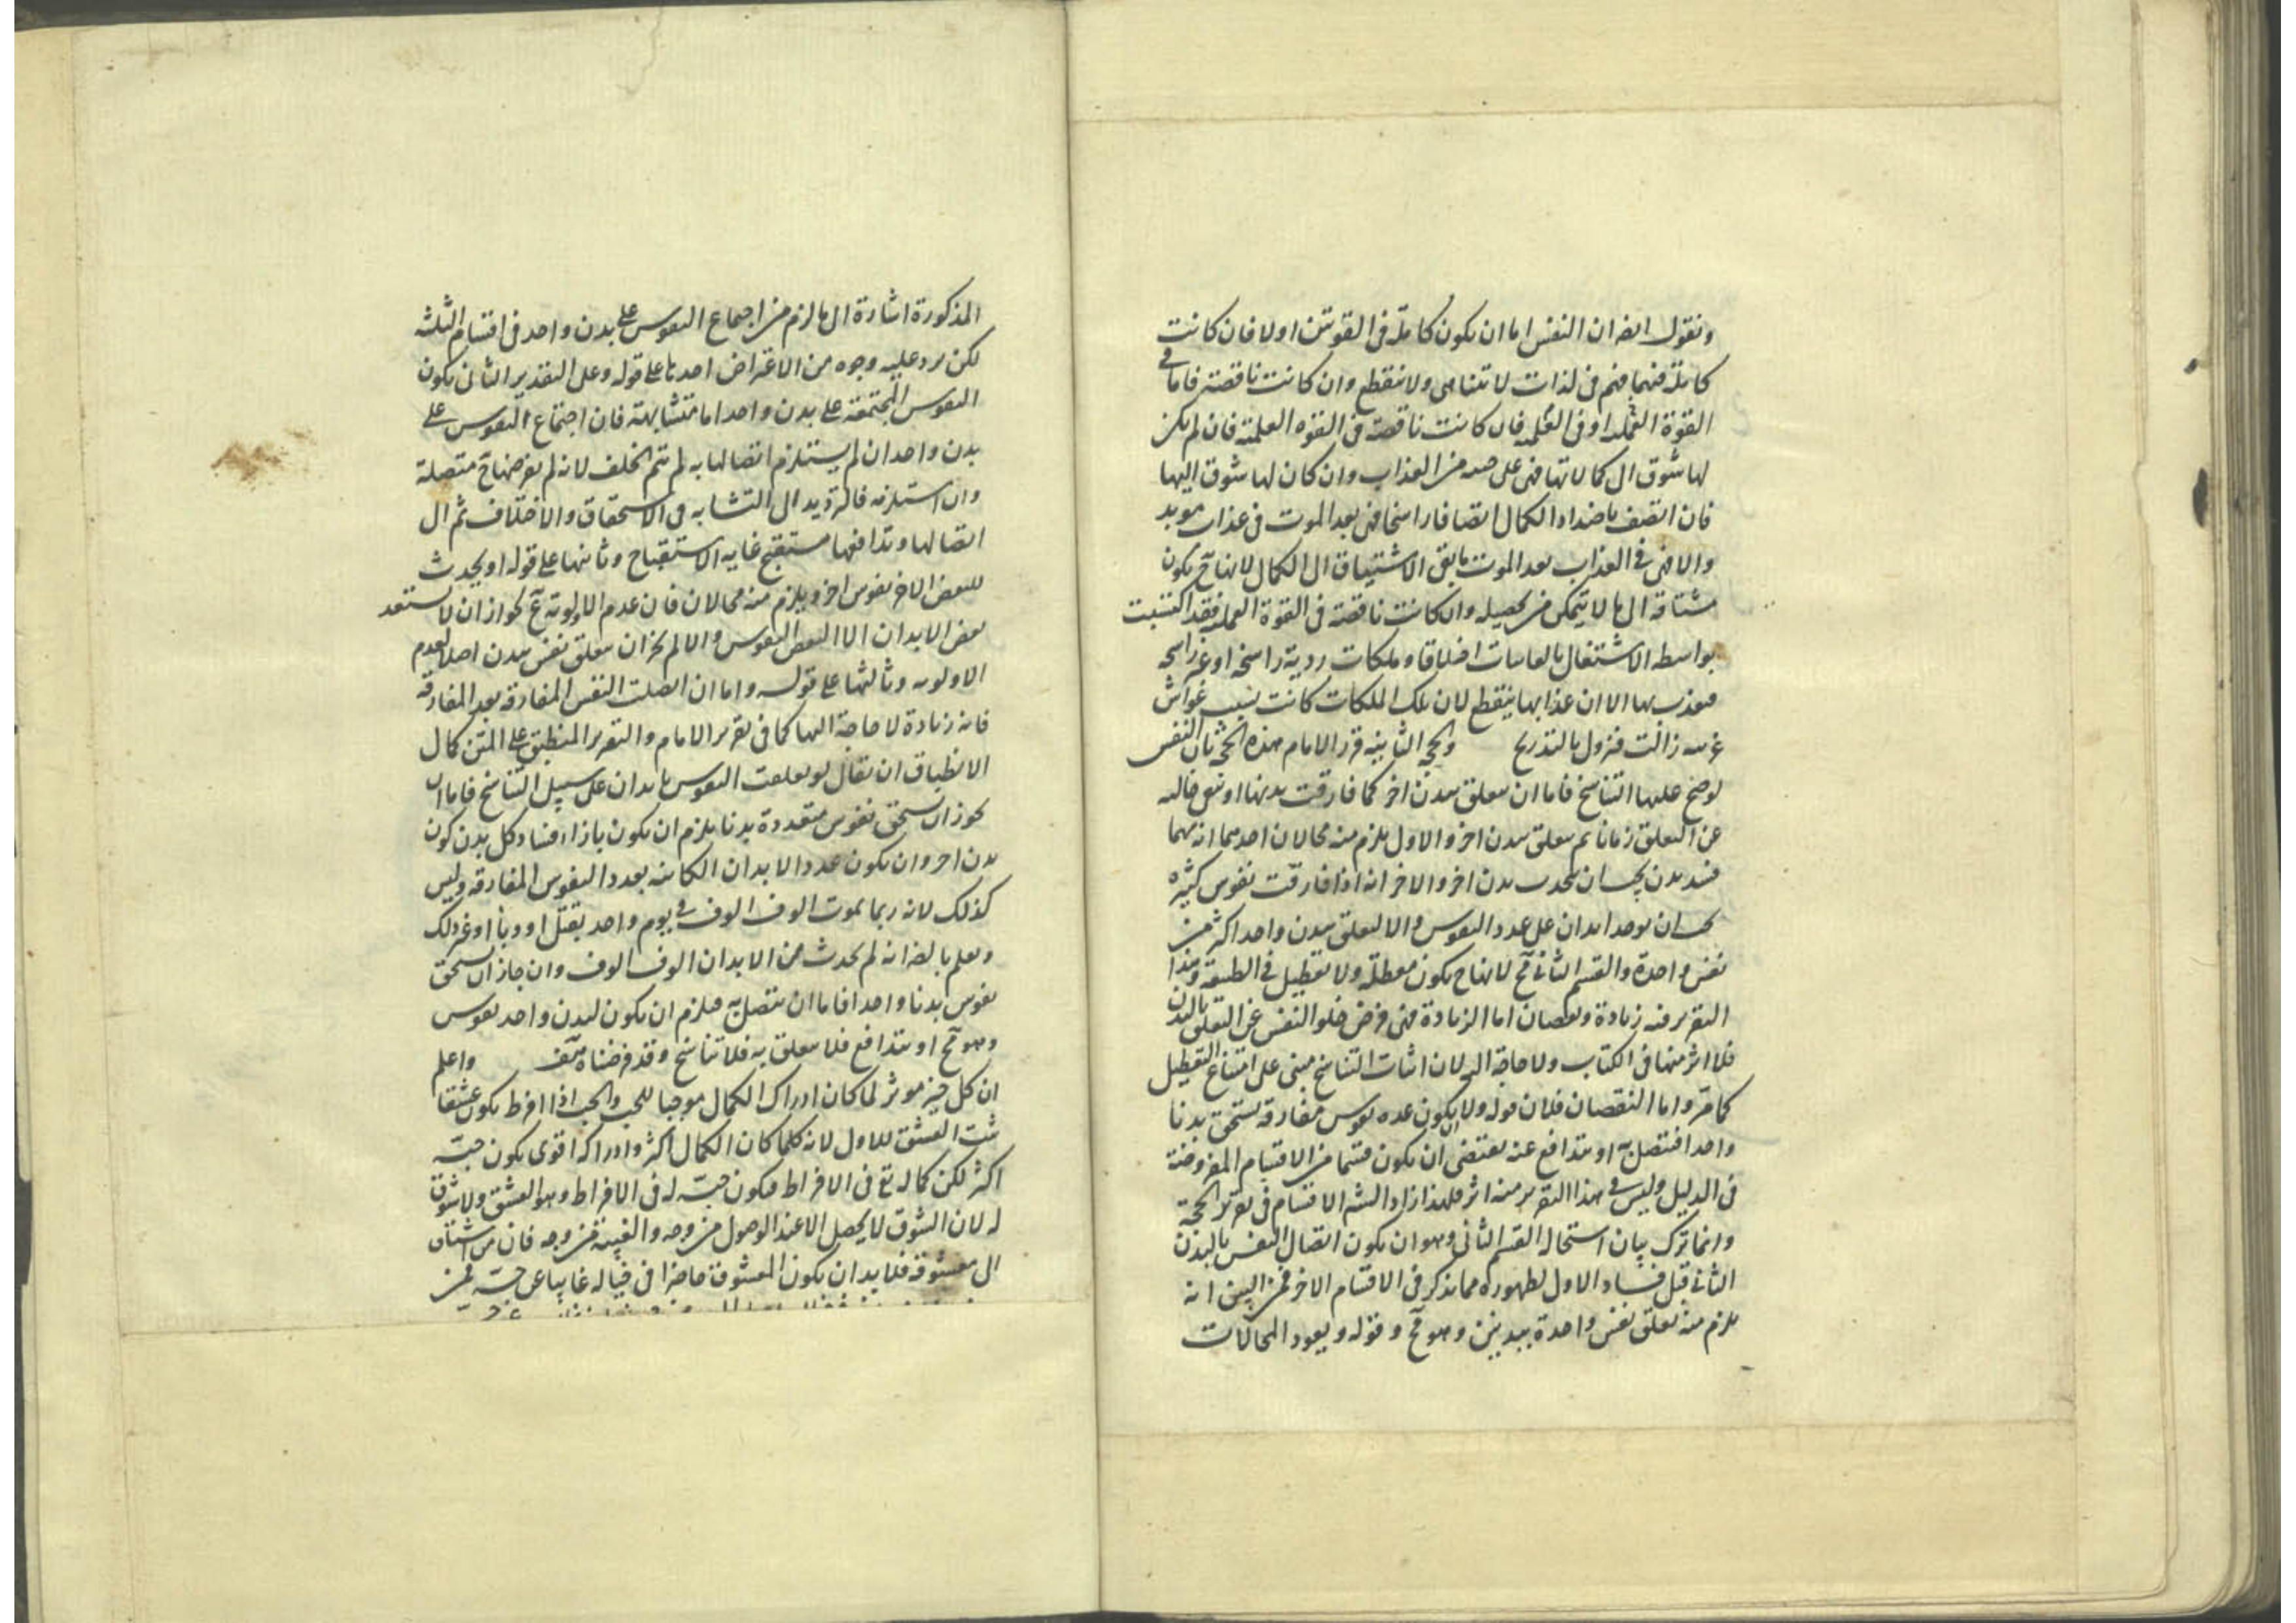 ونقول ايضا ان النفس اما ان يكون كاملة فى القوتين اولا فان كانت
كاملة فيهما فهى فى لذات لا تتناهى ولا تنقطع وان كانت ناقصة فاما فى
القوة العملية او فى العلمية فان كانت ناقصة فى القوة العلمية فان لم يكن
لها شوق الى كمالاتها فهى على من العذاب وان كان لها شوق اليها
فان اتصف باضداد الكمال اتصافا راسخا فهى بعد الموت فى عذاب موبد
والا فهى فى العذاب بعد الموت ما بقى الاشتياق الى الكمال لانها ح يكون
مشتاقة الى ما لا يتمكن من تحصيله وان كانت ناقصة فى القوة العملية فقد اكتسبت
بواسطه الاشتغال اخلاقا وملكات ردية راسخة او غير راسخة
فيعذب بها الا ان عذابها ينقطع لان تلك الملكات كانت بسبب غواش
غريبه زالت فتزول بالتدريج والحجة الثانية قرر الامام هذه الحجة بان النفس
لو صح عليها التناسخ فاما ان يتعلق ببدن اخر كما فارقت بدنها او تبقى خالية
عن التعلق زمانا ثم يتعلق ببدن اخر والاول يلزم منه محالان احدهما انه مهما
فسد بدن يجب ان يحدث بدن اخر والاخر انه اذا فارقت نفوس كثيره
يجب ان يوجد ابدان على عدد النفوس والا لتعلق ببدن واحد اكثر من
نفس واحدة والقسم الثانى مح لانها ح يكون معطلة ولا تعطيل فى الطبيعة وهذا
التقرير فيه زيادة ونقصان اما الزيادة فهى فرض خلو النفس عن التعلق بالبدن
فلا اثر منها فى الكتاب ولا حاجة اليه لان اثبات التناسخ مبنى على امتناع التعطيل
كما مر واما النقصان فلان قوله ولا ان يكون عدة نفوس مفارقة تستحق بدنا
واحدا فتتصل به او تتدافع عنه يقتضى ان يكون قسما من الاقسام المفروضة
فى الدليل وليس فى هذا التقرير منه اثر فلهذا زاد الشه الاقسام فى تقرير الحجة
وانما ترك بيان استحالة القسم الثانى وهو ان يكون اتصال النفس بالبدن
الثانى قبل فساد الاول لظهوره مما يذكر فى الاقسام الاخر فمن البين انه
يلزم منه تعلق نفس واحدة ببدنين وهو مح وقوله ويعود المحالات
المذكورة اشارة الى ما لزم من اجتماع النفوس على بدن واحد فى اقسام الثلثة
لكن يرد عليه وجوه من الاعتراض احدها على قوله وعلى التقدير الثانى يكون
النفوس المجتمعة على بدن واحد اما متشابهة فان اجتماع النفوس على
بدن واحد ان لم يستلزم اتصالها به لم يتم الخلف لانه لم يفرضها ح متصلة
وان استلزمه فالترديد الى التشابه فى الاستحقاق والاختلاف ثم الى
اتصالها وتدافعها مستقبح غايه الاستقباح وثانيها على قوله او يحدث
للبعض الاخر نفوس اخر ويلزم منه محالان فان عدم الاولوية مح لجواز ان لا يستعد
بعض الابدان الا لبعض النفوس والا لم يجز ان يتعلق نفس ببدن اصلا لعدم
الاولويه وثالثها على قوله واما ان اتصلت النفس المفارقة بعد المفارقة
فانه زيادة لا حاجة اليها كما فى تقرير الامام والتقرير المنطبق على المتن كمال
الانطباق ان يقال لو تعلقت النفوس بابدان على سبيل التناسخ فاما ان
يجوز ان يستحق نفوس متعددة بدنا يلزم ان يكون بازاء فساد كل بدن كون
بدن اخر وان يكون عدد الابدان الكائنة بعدد النفوس المفارقة وليس
كذلك لانه ربما يموت الوف الوف فى يوم واحد بقتل او وباء او غير ذلك
ويعلم بالضر انه لم يحدث من الابدان الوف الوف وان جاز ان يستحق
نفوس بدنا واحدا فاما ان تتصل به فيلزم ان يكون لبدن واحد نفوس
وهو مح او تتدافع فلا يتعلق به فلا تناسخ وقد فرضناه هف واعلم
ان كل خير موثر لما كان ادراك الكمال موجبا للحب والحب اذا افرط يكون عشقا
ثبت العشق للاول لانه كلما كان الكمال اكثر وادراكه اقوى يكون حبه
اكثر لكن كماله تع فى الافراط فيكون حبه له فى الافراط وهو العشق ولا شوق
له لان الشوق لا يحصل الا عند الوصول من وجه والغيبة من وجه فان من اشتاق
الى معشوقه فلا بد ان يكون المعشوق حاضرا فى خياله غايبا عن حسه فمن